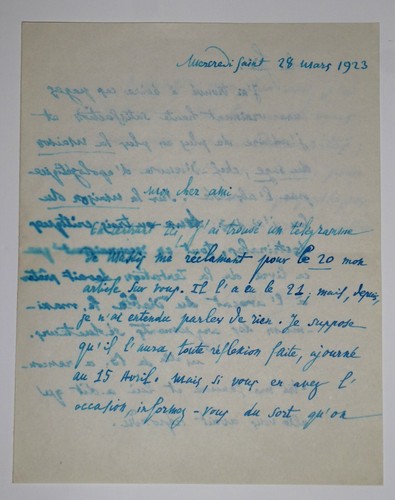 Mercredi saint 28 mars 1923
Mon cher ami
j'ai trouvé un télégramme
de Massis me réclamant pour le 20 mon
article sur vous. Il l'a eu le 21; mais, depuis,
je n'ai entendu parler de rien. Je suppose
qu'il l'aura, toute réflexion faite, ajourné
au 15 Avril. Mais, si vous en avez l'
occasion, informez-vous du sort qu'on